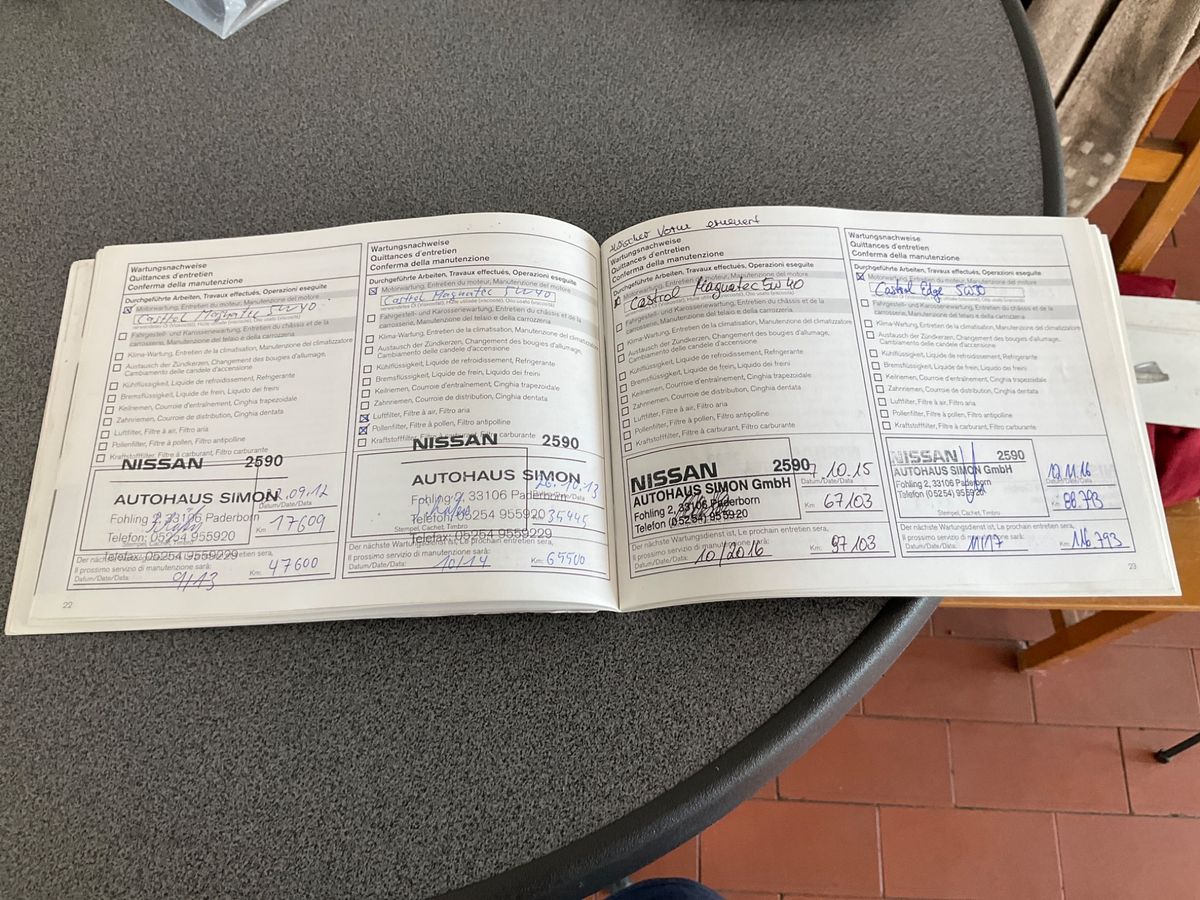 Wartungsnachweise
Quittances d'entretien
Conferma della manutenzione
Durchgeführte Arbeiten, Travaux effectués, Operazioni eseguite
Motorwartung, Entretien du moteur, Manutenzione del motore
Castrol Magnatec 5W40
Fahrgestell- und Karosseriewartung, Entretien du châssis et de la
carrosserie, Manutenzione del telaio e della carrozzeria
Klima-Wartung, Entretien de la climatisation, Manutenzione del climatizzatore
Austausch der Zündkerzen, Changement des bougies d'allumage,
Cambiamento delle candele d'accensione
Kühlflüssigkeit, Liquide de refroidissement, Refrigerante
Bremsflüssigkeit, Liquide de frein, Liquido dei freini
Keilriemen, Courroie d'entraînement, Cinghia trapezoidale
Zahnriemen, Courroie de distribution, Cinghia dentata
Luftfilter, Filtre à air, Filtro aria
Pollenfilter, Filtre à pollen, Filtro antipolline
Kraftstofffilter, Filtre à carburant, Filtro carburante
NISSAN 2590
AUTOHAUS SIMON
Fohling 2, 33106 Paderborn
Telefon: 05254 955920
Telefax: 05254 9559229
.09.12
Km: 17609
Der nächste Wartungsdienst ist, Le prochain entretien sera,
Il prossimo servizio di manutenzione sarà:
Datum/Date/Data: 9/13 Km: 47600
22
Wartungsnachweise
Quittances d'entretien
Conferma della manutenzione
Durchgeführte Arbeiten, Travaux effectués, Operazioni eseguite
Motorwartung, Entretien du moteur, Manutenzione del motore
Castrol Magnatec 5W40
Fahrgestell- und Karosseriewartung, Entretien du châssis et de la
carrosserie, Manutenzione del telaio e della carrozzeria
Klima-Wartung, Entretien de la climatisation, Manutenzione del climatizzatore
Austausch der Zündkerzen, Changement des bougies d'allumage,
Cambiamento delle candele d'accensione
Kühlflüssigkeit, Liquide de refroidissement, Refrigerante
Bremsflüssigkeit, Liquide de frein, Liquido dei freini
Keilriemen, Courroie d'entraînement, Cinghia trapezoidale
Zahnriemen, Courroie de distribution, Cinghia dentata
Luftfilter, Filtre à air, Filtro aria
Pollenfilter, Filtre à pollen, Filtro antipolline
Kraftstofffilter, Filtre à carburant, Filtro carburante
NISSAN 2590
AUTOHAUS SIMON
Fohling 2, 33106 Paderborn
Telefon: 05254 955920
Stempel, Cachet, Timbro
Telefax: 05254 9559229
.10.13
Il prossimo servizio di manutenzione sarà:
Datum/Date/Data: 10/14 Km: 65500
vorne erneuert
Wartungsnachweise
Quittances d'entretien
Conferma della manutenzione
Durchgeführte Arbeiten, Travaux effectués, Operazioni eseguite
Motorwartung, Entretien du moteur, Manutenzione del motore
Castrol Magnatec 5W40
Fahrgestell- und Karosseriewartung, Entretien du châssis et de la
carrosserie, Manutenzione del telaio e della carrozzeria
Klima-Wartung, Entretien de la climatisation, Manutenzione del climatizzatore
Austausch der Zündkerzen, Changement des bougies d'allumage,
Cambiamento delle candele d'accensione
Kühlflüssigkeit, Liquide de refroidissement, Refrigerante
Bremsflüssigkeit, Liquide de frein, Liquido dei freini
Keilriemen, Courroie d'entraînement, Cinghia trapezoidale
Zahnriemen, Courroie de distribution, Cinghia dentata
Luftfilter, Filtre à air, Filtro aria
Pollenfilter, Filtre à pollen, Filtro antipolline
Kraftstofffilter, Filtre à carburant, Filtro carburante
NISSAN 2590
AUTOHAUS SIMON GmbH
Fohling 2, 33106 Paderborn
Telefon (05254) 955920
.10.15
Datum/Date/Data
Km: 67103
Der nächste Wartungsdienst ist, Le prochain entretien sera,
Il prossimo servizio di manutenzione sarà:
Datum/Date/Data: 10/2016 Km: 97103
Wartungsnachweise
Quittances d'entretien
Conferma della manutenzione
Durchgeführte Arbeiten, Travaux effectués, Operazioni eseguite
Motorwartung, Entretien du moteur, Manutenzione del motore
Castrol Edge 5W30
Fahrgestell- und Karosseriewartung, Entretien du châssis et de la
carrosserie, Manutenzione del telaio e della carrozzeria
Klima-Wartung, Entretien de la climatisation, Manutenzione del climatizzatore
Austausch der Zündkerzen, Changement des bougies d'allumage,
Cambiamento delle candele d'accensione
Kühlflüssigkeit, Liquide de refroidissement, Refrigerante
Bremsflüssigkeit, Liquide de frein, Liquido dei freini
Keilriemen, Courroie d'entraînement, Cinghia trapezoidale
Zahnriemen, Courroie de distribution, Cinghia dentata
Luftfilter, Filtre à air, Filtro aria
Pollenfilter, Filtre à pollen, Filtro antipolline
Kraftstofffilter, Filtre à carburant, Filtro carburante
NISSAN 2590
AUTOHAUS SIMON GmbH
Fohling 2, 33106 Paderborn
Telefon (05254) 955920
Stempel, Cachet, Timbro
.11.16
Datum/Date/Data
Km: 88.793
Der nächste Wartungsdienst ist, Le prochain entretien sera,
Il prossimo servizio di manutenzione sarà:
Datum/Date/Data: 11/17 Km: 116.793
23